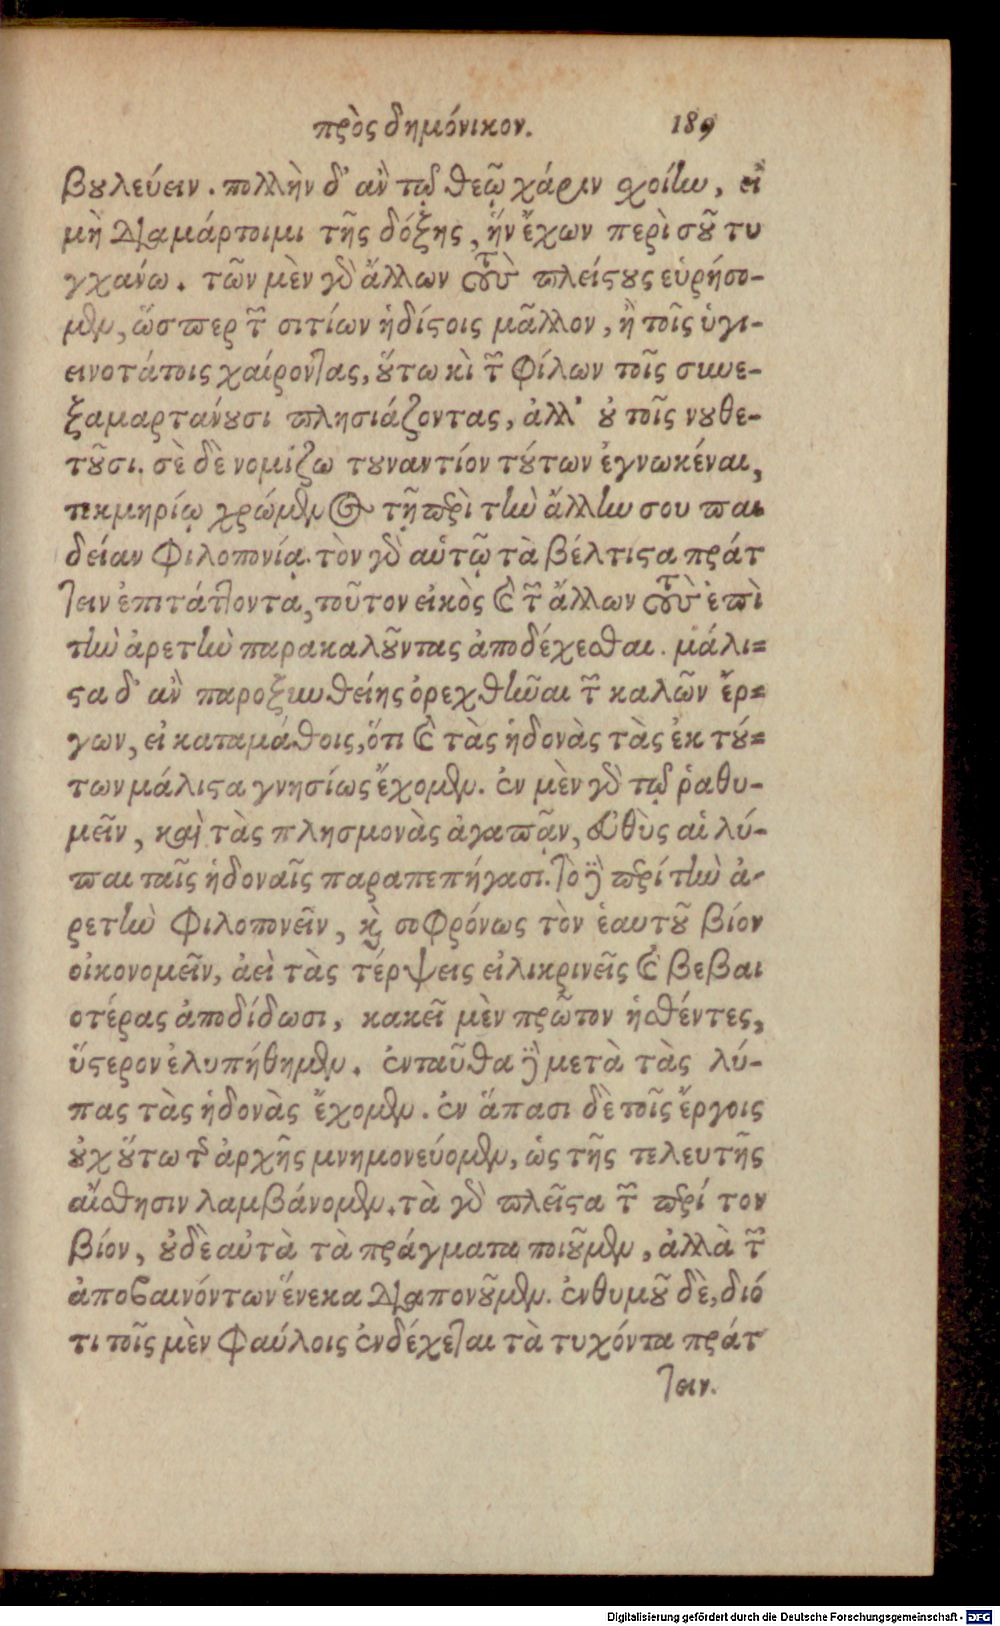 πρὸς δημόνικον. 189
βουλεύειν. πολλὴν δ' ἂν τῷ θεῷ χάριν ἐχοίην, εἰ
μὴ διαμάρτοιμι τῆς δόξης, ἣν ἔχων περὶ σοῦ τυ
γχάνω. τῶν μὲν γὰρ ἄλλων τοὺς πλείςους εὑρήσο-
μεν, ὥσπερ τῶν σιτίων ἡδίςοις μᾶλλον, ἢ τοῖς ὑγι-
εινοτάτοις χαίροντας, οὕτω κὶ τῶν φίλων τοῖς συνε-
ξαμαρτάνουσι πλησιάζοντας, ἀλλ' οὐ τοῖς νουθε-
τοῦσι. σὲ δὲ νομίζω τουναντίον τούτων ἐγνωκέναι,
τεκμηρίῳ χρώμενος τῇ περὶ τὴν ἄλλην σου παι
δείαν φιλοπονίᾳ. τὸν γὰρ αὑτῷ τὰ βέλτιςα πράτ
τειν ἐπιτάττοντα, τοῦτον εἰκὸς καὶ τῶν ἄλλων τοὺς ἐπὶ
τὴν ἀρετὴν παρακαλοῦντας ἀποδέχεσθαι. μάλι=
ςα δ' ἂν παροξυνθείης ὀρεχθῆναι τῶν καλῶν ἔρ=
γων, εἰ καταμάθοις, ὅτι καὶ τὰς ἡδονὰς τὰς ἐκ τού=
των μάλιςα γνησίως ἔχομεν. ἐν μὲν γὰρ τῷ ῥαθυ-
μεῖν, καὶ τὰς πλησμονὰς ἀγαπᾷν, εὐθὺς αἱ λύ-
παι ταῖς ἡδοναῖς παραπεπήγασι. τὸ δὲ περί τὴν ἀ-
ρετὴν φιλοπονεῖν, καὶ σοφρόνως τὸν ἑαυτοῦ βίον
οἰκονομεῖν, ἀεὶ τὰς τέρψεις εἰλικρινεῖς καὶ βεβαι
οτέρας ἀποδίδωσι, κακεῖ μὲν πρῶτον ἡσθέντες,
ὕςερον ἐλυπήθημεν. ἐνταῦθα δὲ μετὰ τὰς λύ-
πας τὰς ἡδονὰς ἔχομεν. ἐν ἅπασι δὲ τοῖς ἔργοις
οὐχ οὕτω τῆς ἀρχῆς μνημονεύομεν, ὡς τῆς τελευτῆς
αἴσθησιν λαμβάνομεν. τὰ γὰρ πλεῖςα τῶν περί τον
βίον, οὐδὲ αὐτὰ τὰ πράγματα ποιοῦμεν, ἀλλὰ τῶν
ἀποβαινόντων ἕνεκα διαπονοῦμεν. ἐνθυμοῦ δὲ, διό
τι τοῖς μὲν φαύλοις ἐνδέχεται τὰ τυχόντα πράτ
τειν.
Digitalisierung gefördert durch die Deutsche Forschungsgemeinschaft - DFG